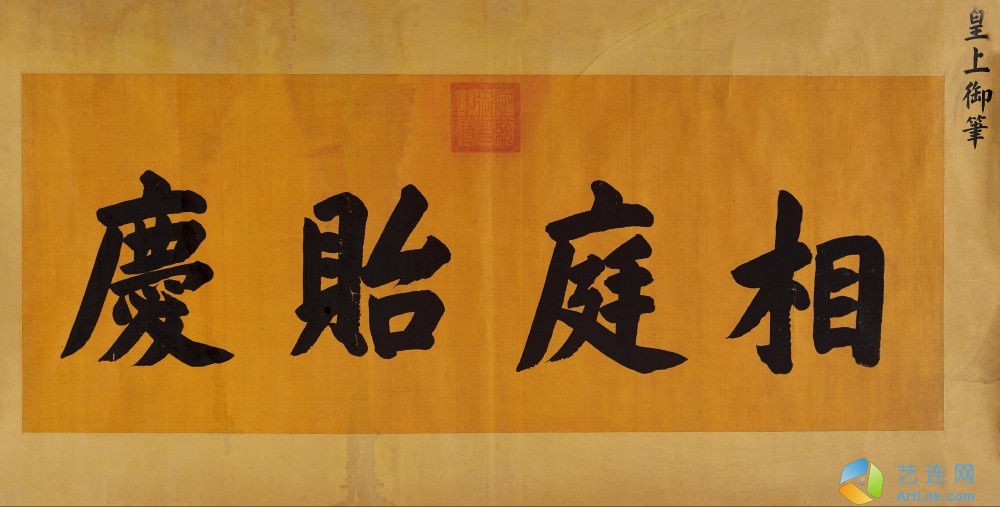 皇上御筆
相庭貽慶
艺连网
ArtLnk.com